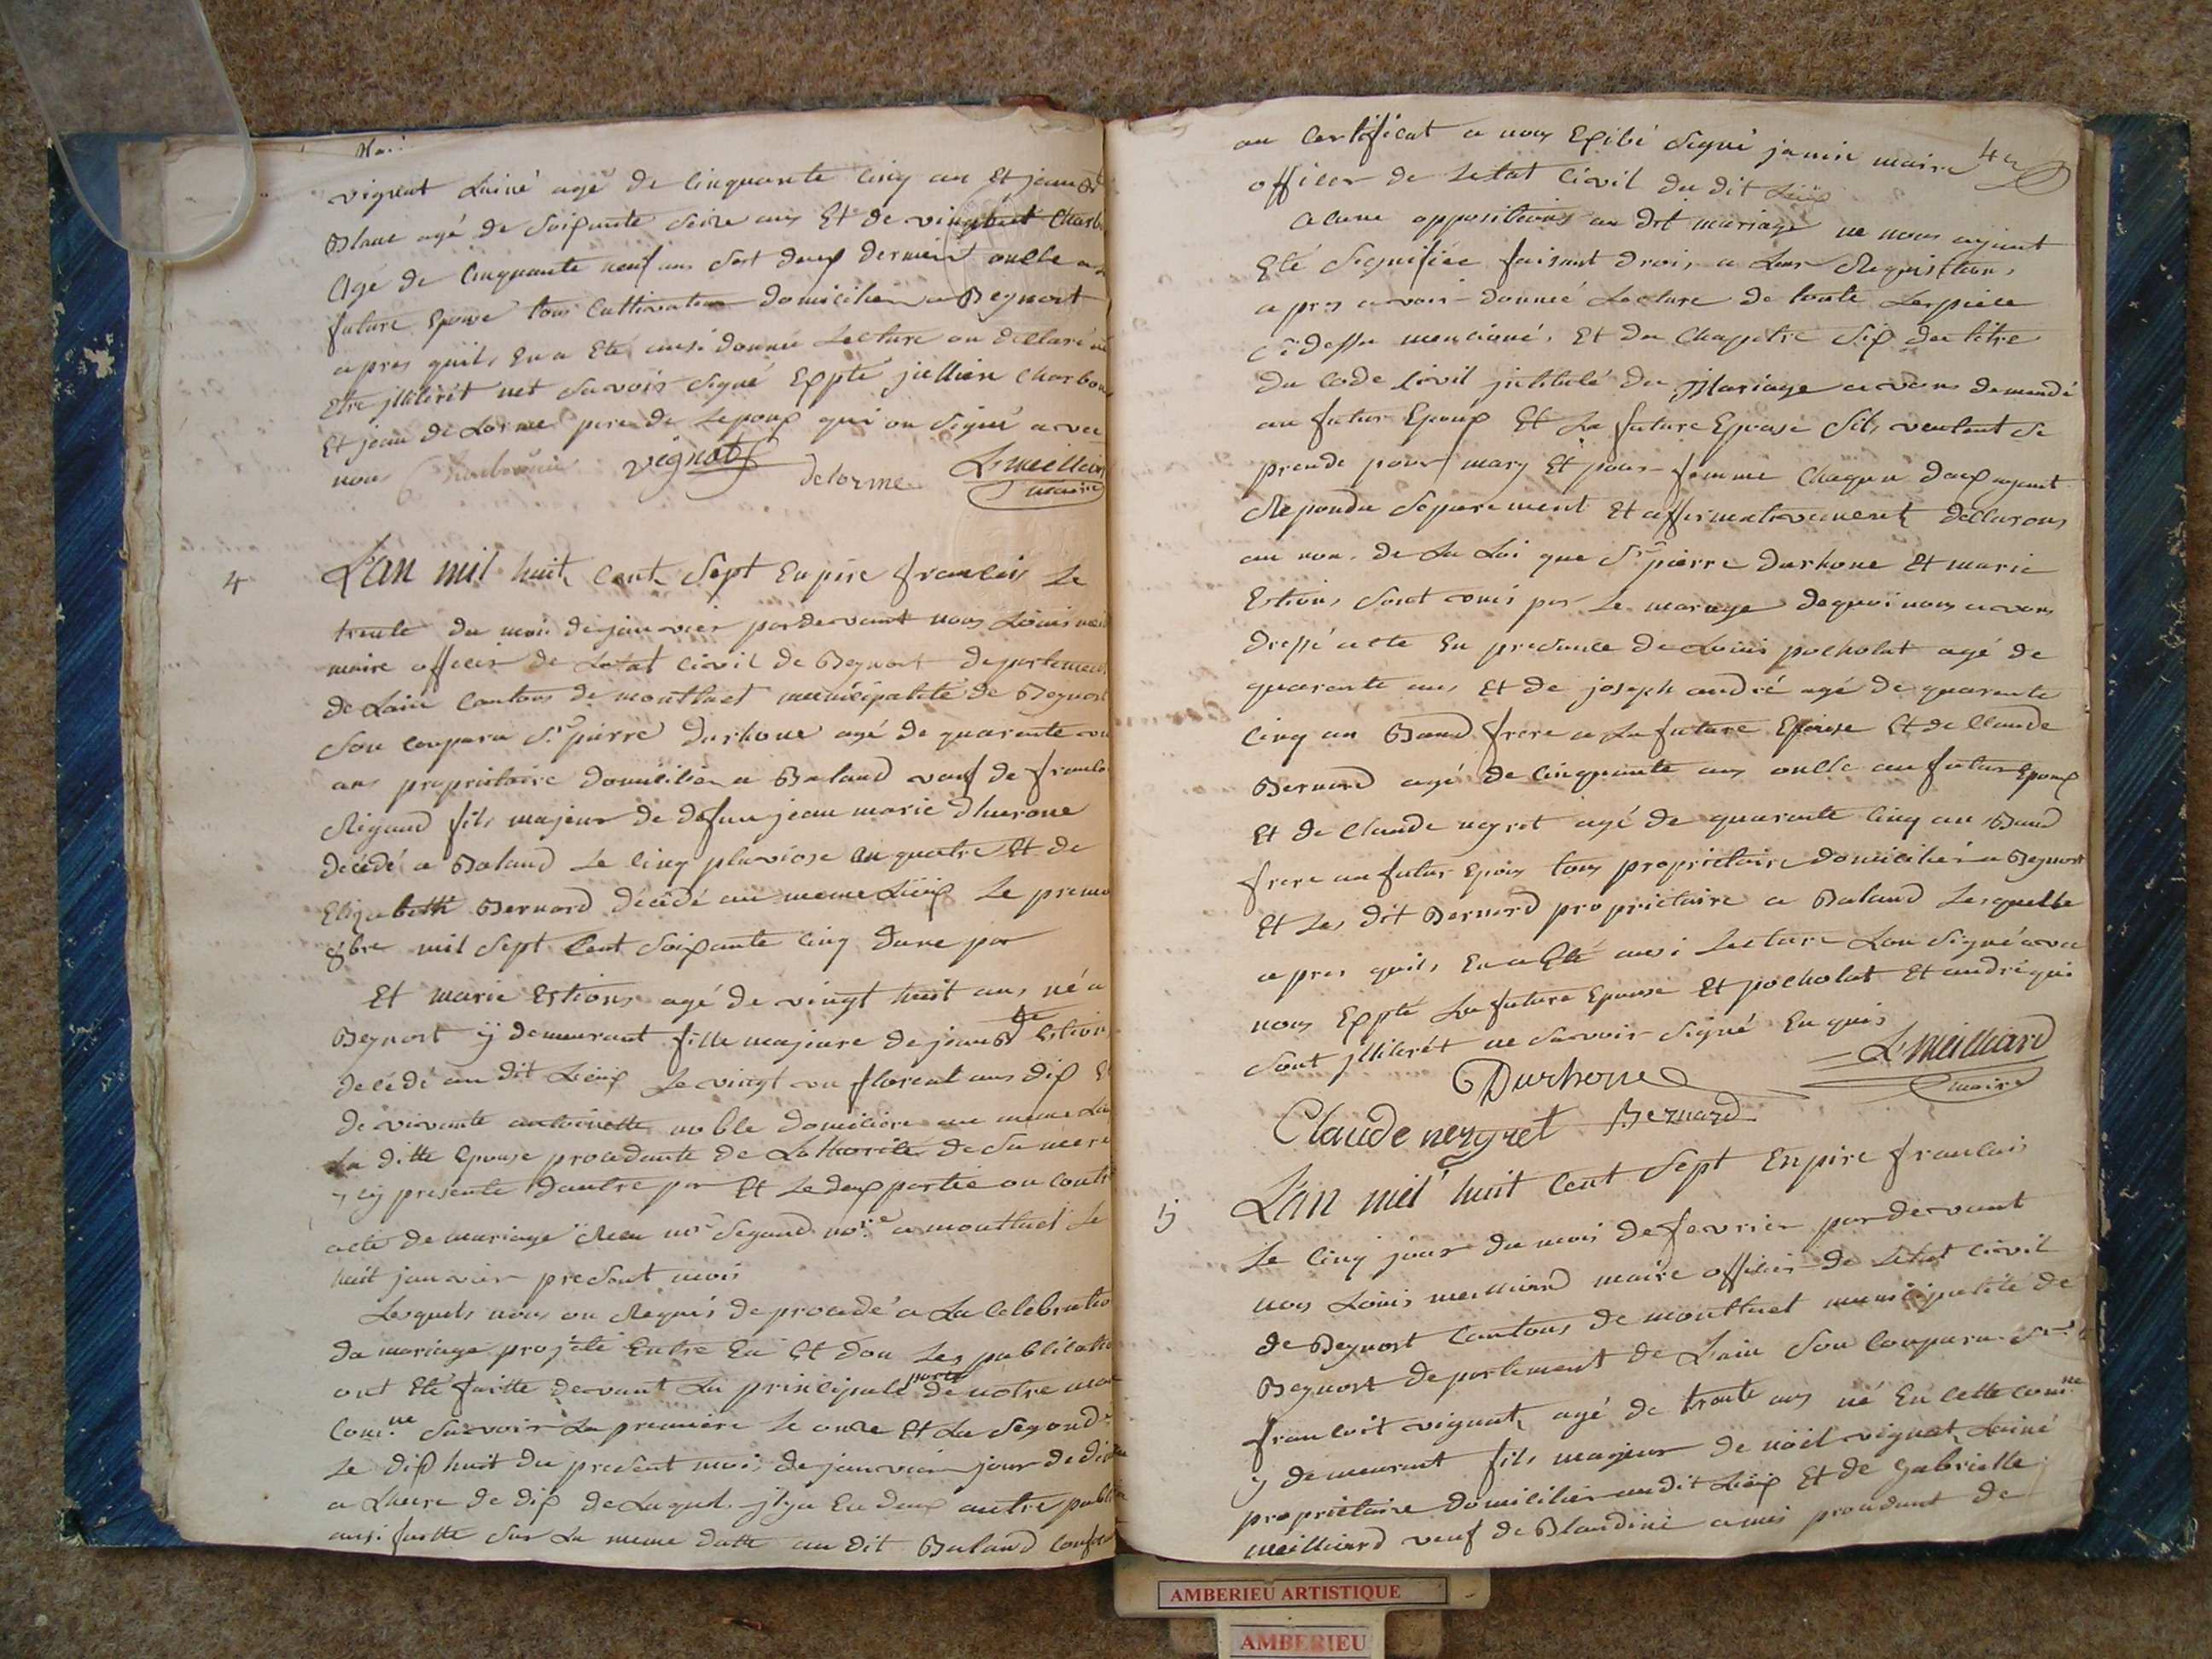 vignat Lainé agé de Cinquante Cinq an Et jean Bte
Blanc agé de Soixante Seize ans Et de
Agé de Cinquante neuf ans Set deux dernier oncle a
future Epouse tous Cultivateur domicilier a Beynost
apres quils En a Eté ausi donné Lecture on déclaré
Etre jlliterét net Savoir Signé Expté jullien Charbon
Et jean de Lorme pere de Lepoux qui on Signé avec
nous Charbonnié vignat delorme L. meilliard
maire
4 L'an mil huit Cent Sept Enpire francais Le
trente du mois de janvier pardevant nous Louis
maire officier de Letat Civil de Beynost departement
de Lain Cantons de montluel municipalité de Beynost
Son Conparu Sr pierre Durhone agé de quarante
ans proprietaire domicilier a Baland veuf de
Rigaud fils majeur de defun jean marie Dhurone
decédé a Baland Le Cinq pluviose an quatre Et de
Elizabeth Bernard décédé au meme Lieux Le premie
9bre mil Sept Cent Soixante Cinq dune par
Et marie Estions agé de vingt huit ans né a
Beynost ÿ demeurant fille majeure de jean Bte Estion
decédé au dit Lieux Le vingt un floreal ans dix Et
de vivante antoinette noble domicilier au meme Lieu
La ditte Epouse procedante de Lothorité de Sa mere
cy presente dautre par Et Le deux partie on Contr
acte de mariage Recu mr Segaud nore a montluel Le
huit janvier present mois
Lesquels nous on Requis de procedé a La Celebratio
du mariage projété Entre Eu Et don Les publicatio
ont Eté faitte devant La principale porte de notre
Comne Savoir La premiere Le onze Et La Segond
Le dix huit du present mois de janvier jour de
a Lheure de dix de Laquel jlya Eu deux autre publi
ausi faitte Sur La meme datte au dit Baland
au Certificat a nous Exibé Signé janin maire
officer de Letat Civil du dit Lieux
aCune oppositions au dit mariage ne nous ayant
Eté Signifiée faisant droit a Leur Requisitions
apres avoir donneé Lecture de toute Les piece
Cÿ dessu mencioné, Et du Chapitre Six du titre
du Code Civil jntitulé du Mariage avons demandé
au futur Epoux Et La future Epouse Sils veulent Se
prende pour mary Et pour femme Chaqun deux ayant
Repondu Separement Et affirmativement déClarons
au nom de La Loi que Sr pierre Durhone Et marie
Estions Sont unis par Le mariage dequoi nous avons
dressé acte En presance de Louis pocholat agé de
quarante ans Et de joseph andré agé de quarente
Cinq an Baud frere a La future Epouse Et de Claude
Bernard agé de Cinquante ans oncle au futur Epoux
Et de Claude neyret agé de quarante Cinq an Baud
frere au futur Epoux tous proprietaire domicilier a Beynost
Et Les dit Bernard proprietaire a Baland Lesquelle
apres quils En a Eté ausi Lecture Lon Signé avec
nous Expté La future Epouse Et pocholat Et andré qui
Sont jlliterét ne Savoir Signé Enquis
L. Meilliard
maire
Durhone
Claude neyret Bernard
5 L'an mil huit Cent Sept Enpire francais
Le Cinq jour du mois de fevrier pardevant
nous Louis meilliard maire officier de Letat Civil
de Beynost Cantons de montluel municipalité de
Beynost departement de Lain Son Conparu Sr
francoit vignat agé de trente ans né En Cette Comne
y demeurant fils majeur de nöel vignat Lainé
proprietaire domicilier audit Lieux Et de Gabrielle
meilliard veuf de Blandine amis procedant de
AMBERIEU ARTISTIQUE
AMBERIEU